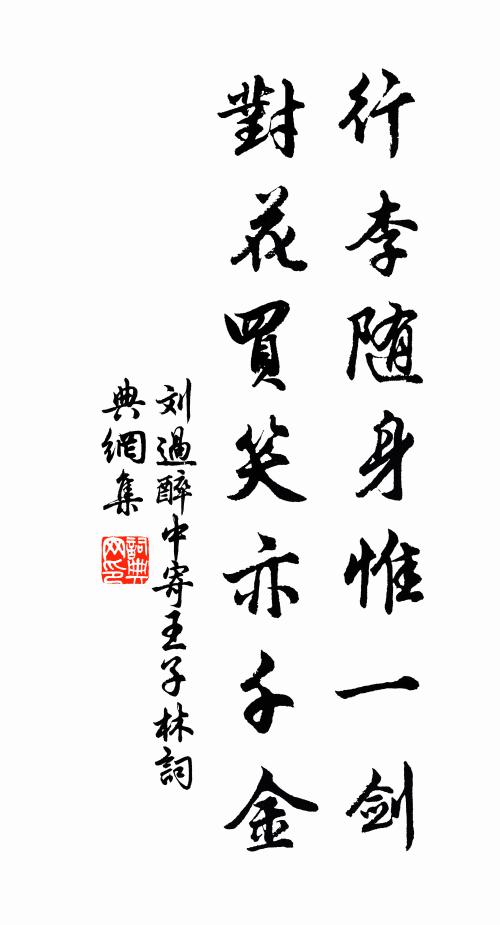 行李随身惟一剑
對花買笑亦千金
刘過醉中寄王子林詞
典網集
詞典
网印